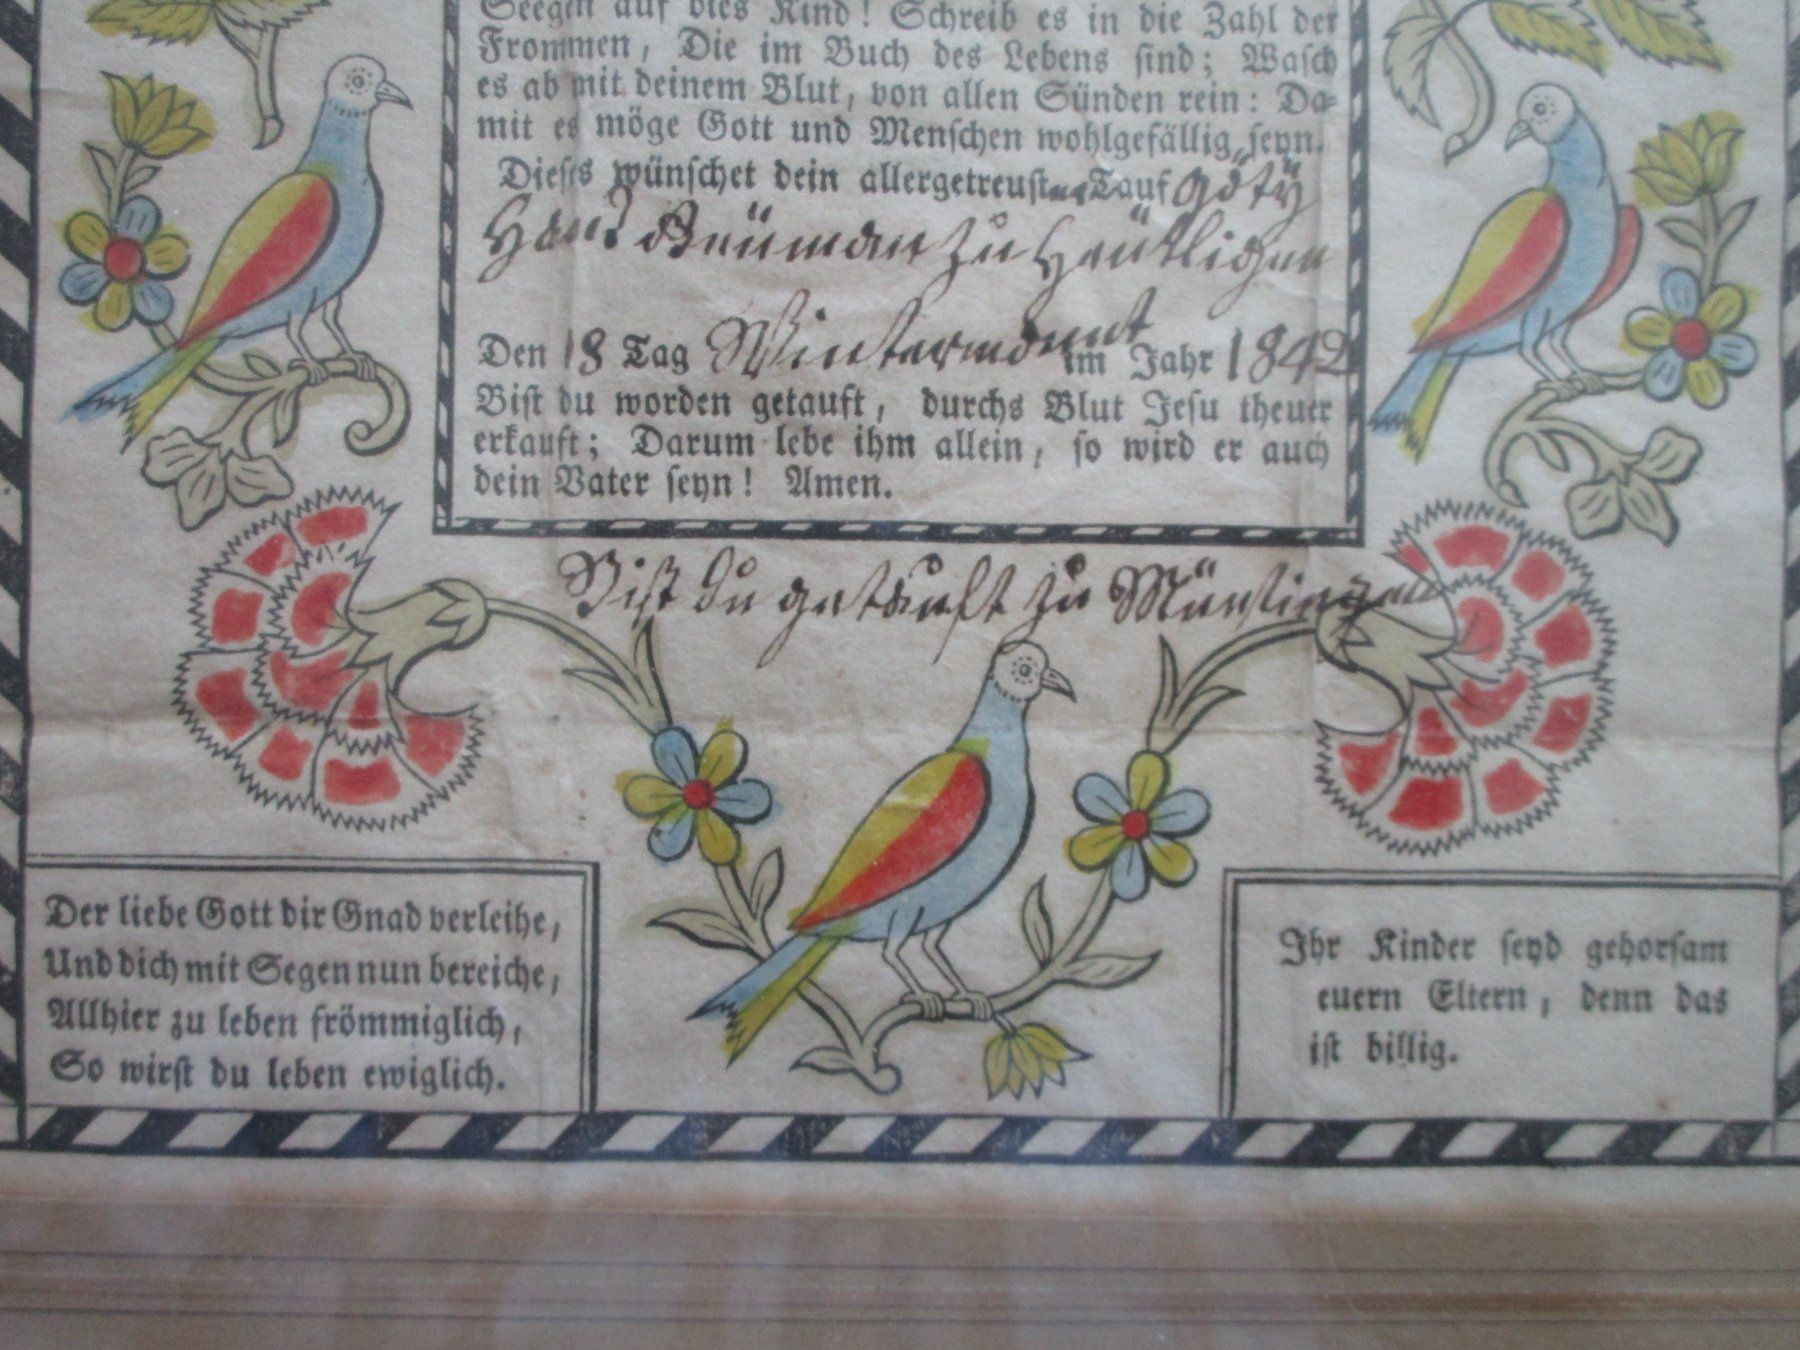 Seegen auf dies Kind! Schreib es in die Zahl der
Frommen, Die im Buch des Lebens sind; Wasch
es ab mit deinem Blut, von allen Sünden rein: Da-
mit es möge Gott und Menschen wohlgefällig seyn.
Dieses wünschet dein allergetreuster Tauf Götÿ
Hans Beüman zu Heütligen
Den 18 Tag Wintermonat im Jahr 1842
Bist du worden getauft, durchs Blut Jesu theuer
erkauft; Darum lebe ihm allein, so wird er auch
dein Vater seyn! Amen.
Bist du getauft zu Münsingen
Der liebe Gott dir Gnad verleihe,
Und dich mit Segen nun bereiche,
Allhier zu leben frömmiglich,
So wirst du leben ewiglich.
Ihr Kinder seyd gehorsam
euern Eltern, denn das
ist billig.